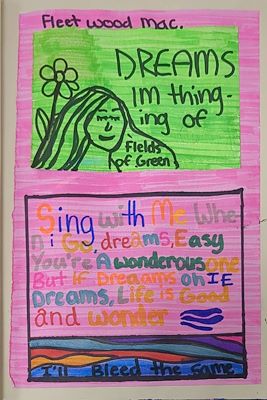 Fleet wood Mac.
DREAMS
Im thing-
ing of
Fields
of Green
Sing with Me Whe
n i Go, dreams, Easy
You're A wonderous one
But if Dreaams oh IE
Dreams, Life is Good
and wonder
I'll Bleed the Same